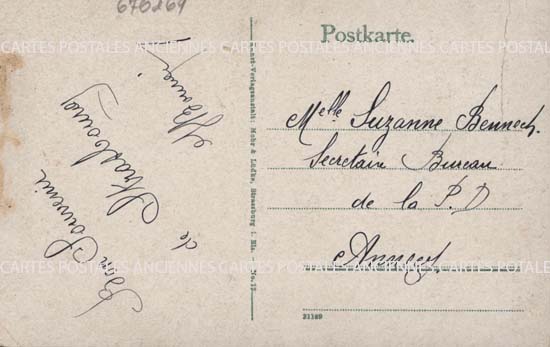 676169
Postkarte.
Bon Souvenir
de Strasbourg
Melle Suzanne Bennech.
Secretair Bureau
de la P. D
Annecy.
Kunst-Verlagsanstalt: Mohr & Lüdke, Strassburg i. Els. No. 12.
31189
CARTES POSTALES ANCIENNES CARTES POSTALES ANCIENNES CARTES POSTALES
CARTES POSTALES ANCIENNES CARTES POSTALES ANCIENNES CARTES POSTALES